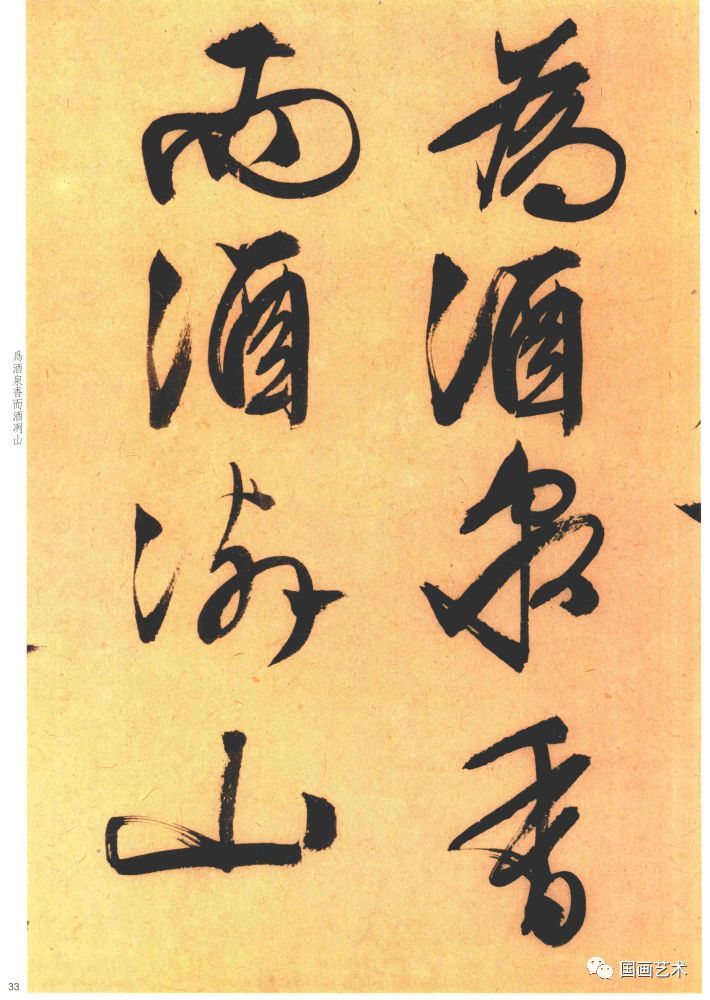 為酒泉香
而酒洌山
爲酒泉香而酒冽山
33
国画艺术